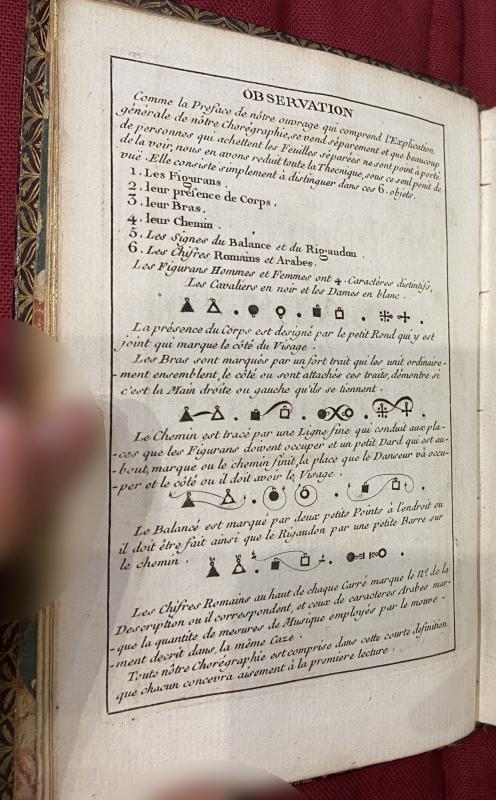 OBSERVATION
Comme la Preface de nôtre ouvrage qui comprend l'Explication
générale de nôtre Chorégraphie, se vend séparement et que beaucoup
de personnes qui achettent les Feuilles séparées ne sont point à porté
de la voir, nous en avons reduit toute la Thecnique, sous ce seul point de
vuë. Elle consiste simplement à distinguer dans ces 6. objets.
1. Les Figurans.
2. leur présence de Corps.
3. leur Bras.
4. leur Chemin.
5. Les Signes du Balance et du Rigaudon.
6. Les Chifres Romains et Arabes.
Les Figurans Hommes et Femmes ont 4. Caractères distintifs,
Les Cavaliers en noir et les Dames en blanc.
La présence du Corps est designé par le petit Rond qui y est
joint qui marque le côté du Visage.
Les Bras sont marqués par un fort trait qui les unit ordinaire-
-ment ensemblent, le côté ou sont attachés ces traits, démontre si
c'est la Main droite ou gauche qu'ils se tiennent.
Le Chemin est tracé par une Ligne fine qui conduit aux pla-
-ces que les Figurans doivent occuper et un petit Dard qui est au-
-bout, marque ou le chemin finit, la place que le Danseur va occu-
-per et le côté ou il doit avoir le Visage.
Le Balancé est marqué par deux petits Points à l'endroit ou
il doit être fait ainsi que le Rigaudon par une petite Barre sur
le chemin.
Les Chifres Romains au haut de chaque Carré marque le N.º de la
Description ou il correspondent, et ceux de caracteres Arabes mar-
-que la quantite de mesures de Musique employés par le mouve-
-ment décrit dans, la même Caze.
Toute nôtre Chorégraphie est comprise dans cette courte definition
que chacun concevra aisement à la premiere lecture.